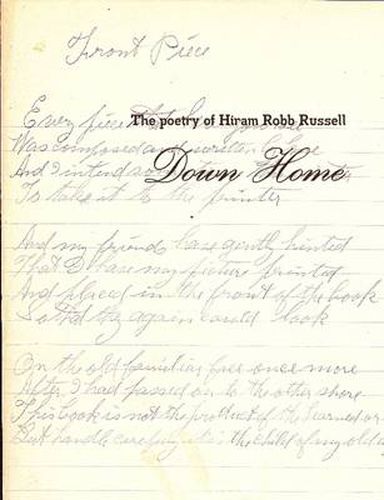 Front Piece
Every piece
The poetry of Hiram Robb Russell
Was composed and written
And I intend
Down Home
To take it to the printer
And my friends have gently hinted
That I have my picture printed
And placed in the front of the book
So that they again could look
On the old familiar face once more
After I had passed on to the other shore
This book is not the product of the learned or
But handle carefully its the child of my old